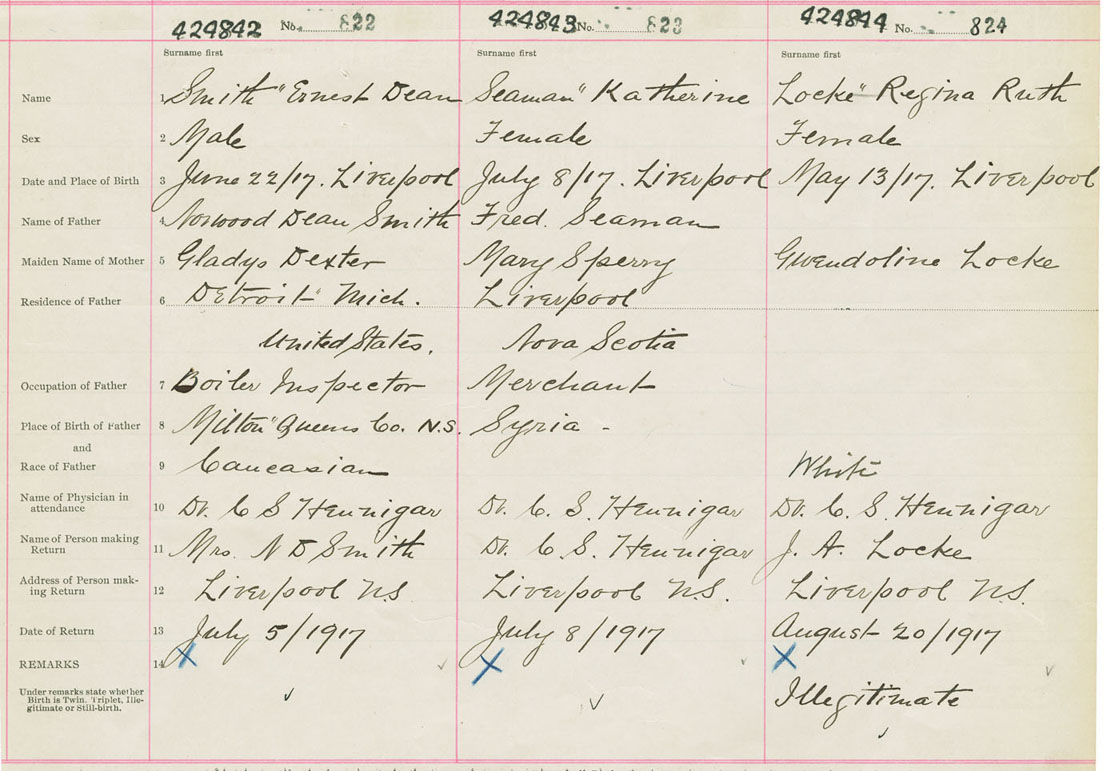 424842 No. 822 424843 No. 823 424844 No. 824
Surname first Surname first Surname first
Name 1 Smith "Ernest Dean Seaman" Katherine Locke" Regina Ruth
Sex 2 Male Female Female
Date and Place of Birth 3 June 22/17. Liverpool July 8/17. Liverpool May 13/17. Liverpool
Name of Father 4 Norwood Dean Smith Fred. Seaman
Maiden Name of Mother 5 Gladys Dexter Mary Sperry Gwendoline Locke
Residence of Father 6 Detroit Mich. Liverpool
United States. Nova Scotia
Occupation of Father 7 Boiler Inspector Merchant
Place of Birth of Father 8 Milton" Queens Co. N.S. Syria -
and
Race of Father 9 Caucasian White
Name of Physician in
attendance 10 Dr. C S Hennigar Dr. C. S. Hennigar Dr. C. S. Hennigar
Name of Person making
Return 11 Mrs. N D Smith Dr. C. S. Hennigar J. A. Locke
Address of Person mak-
ing Return 12 Liverpool N.S. Liverpool N.S. Liverpool N.S.
Date of Return 13 July 5/1917 July 8/1917 August 20/1917
REMARKS 14 X X X
Under remarks state whether
Birth is Twin. Triplet, Ille-
gitimate or Still-birth. Illegitimate